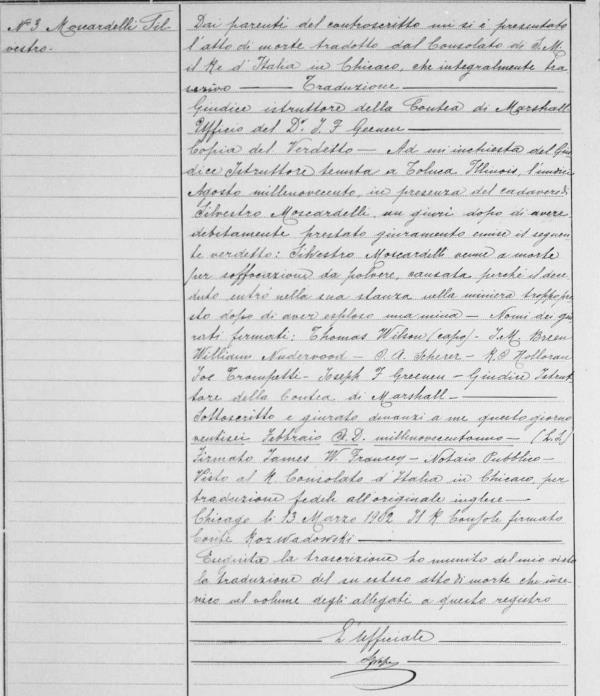 N° 3 Moscardelli Sil-
vestro.
Dai parenti del controscritto mi si è presentato
l'atto di morte tradotto dal Consolato di S. M.
il Re d'Italia in Chicaco, che integralmente tra
scrivo — Traduzione
Giudice istruttore della Contea di Marshall
Ufficio del Dr. J. F Greenen
Copia del Verdetto — Ad un'inchiesta del Giu
dice Istruttore tenuta a Toluca Illinois, l'undici
Agosto millenovecento, in presenza del cadavere di
Silvestro Moscardelli, un giurì dopo di avere
debitamente prestato giuramento emise il seguen
te verdetto: Silvestro Moscardelli venne a morte
per soffocazione da polvere, causata perchè il dece
duto entrò nella sua stanza nella miniera troppo pre
sto dopo di aver esploso una mina — Nomi dei giu
rati firmati: Thomas Wilson (capo) - J. M. Breen
William Underwood - O. A. Scherer - R. P Holloran
Joe Trompetti - Joseph F Greenen - Giudice Istrut
tore della Contea di Marshall
Sottoscritto e giurato dinanzi a me questo giorno
ventisei Febbraio A. D. millenovecentouno — (L.S.)
Firmato James W. Francey - Notaio Pubblico -
Visto al R. Consolato d'Italia in Chicaco, per
traduzione fedele all'originale inglese —
Chicago li 13 Marzo 1902 Il R Console firmato
Conte Rozwadowski
Eseguita la trascrizione ho munito del mio visto
la traduzione del su esteso atto di morte che inse
risco nel volume degli allegati a questo registro
L'Ufficiale